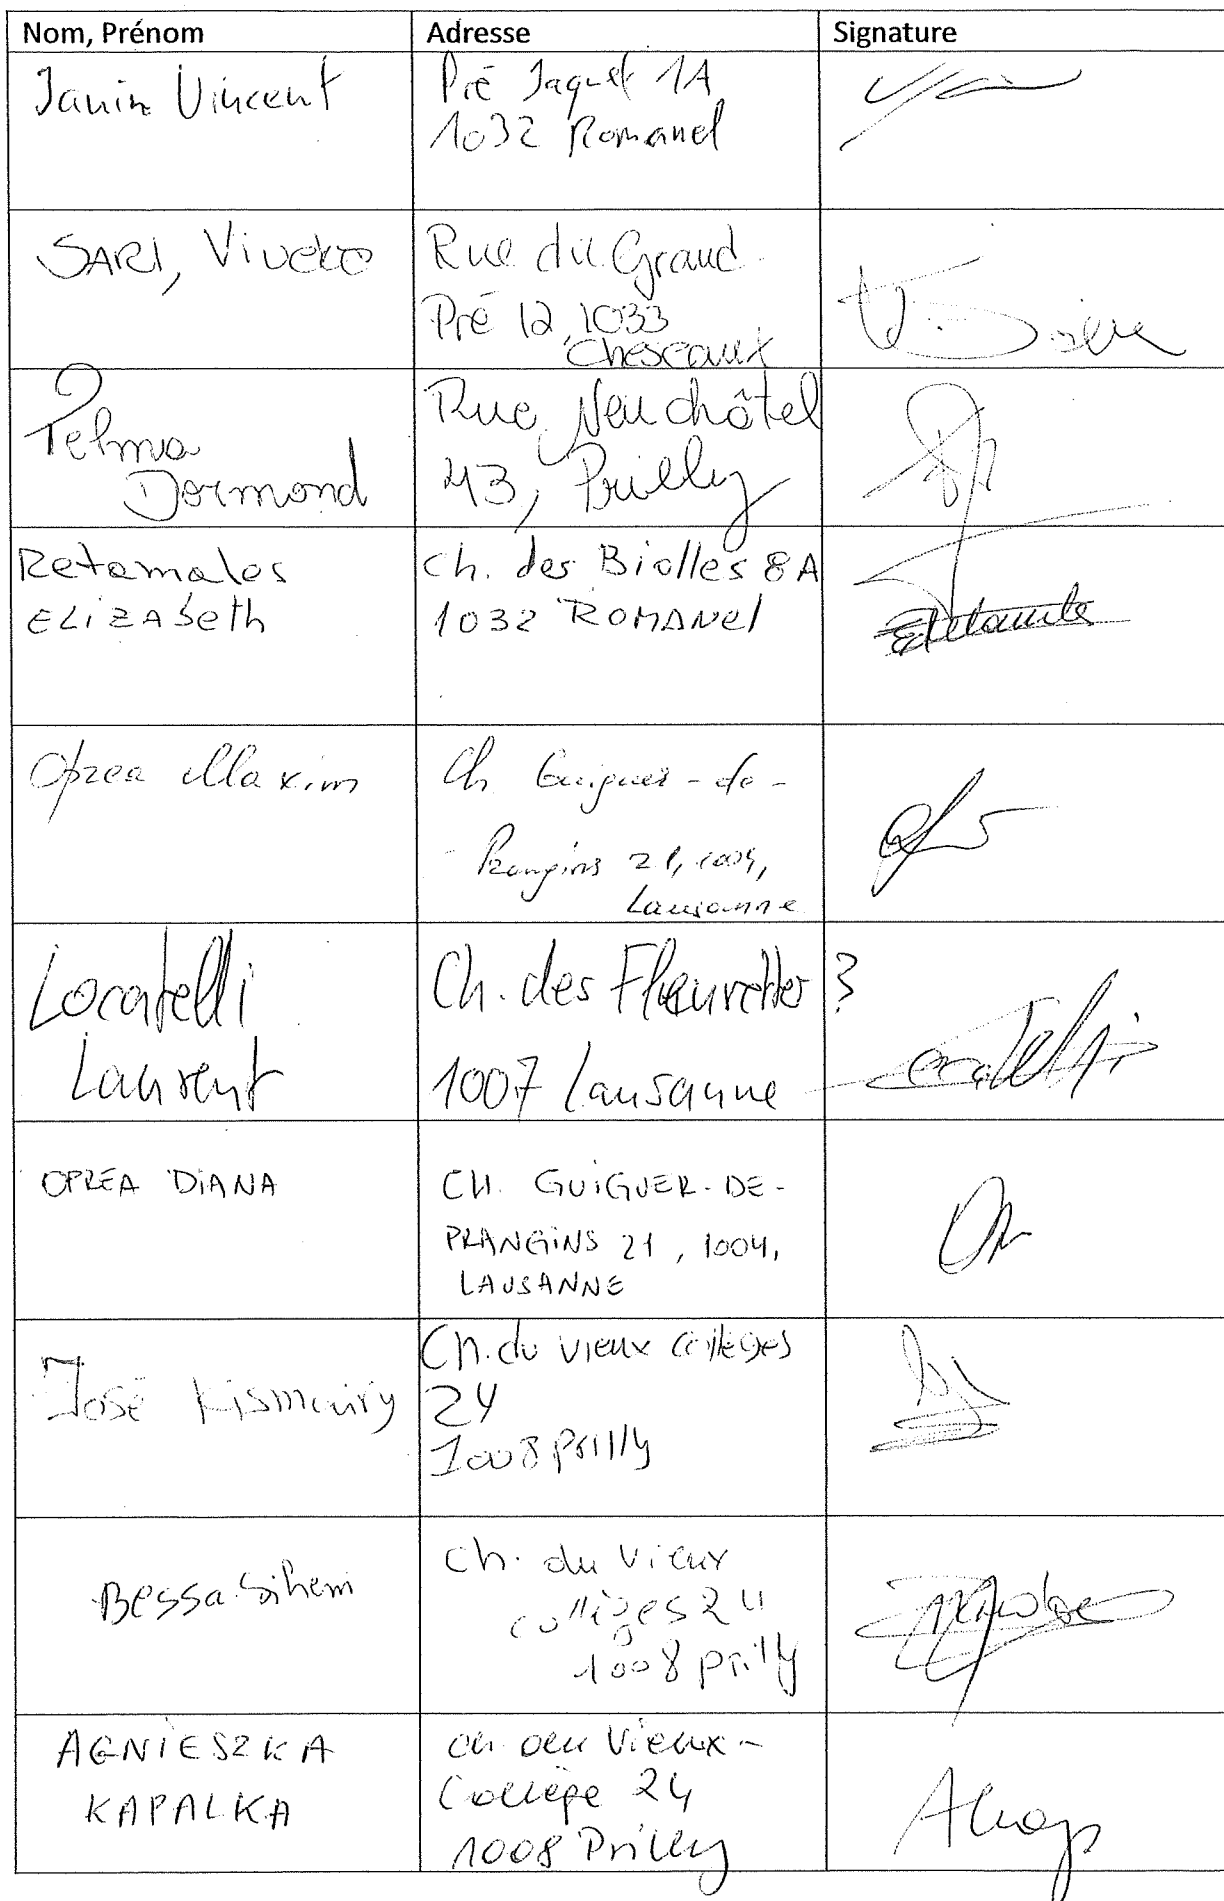 Nom, Prénom Adresse Signature
Janin Vincent Pré Jaquet 1A
1032 Romanel
SARI, Viveke Rue du Grand
Pré 12, 1033
Cheseaux
Telma Rue Neuchâtel
Dormond 43, Prilly
Retamales Ch. des Biolles 8A
ELIZAbeth 1032 ROMANEl
Oprea Maxim Ch Guiguer-de-
-Prangins 21, 1004,
Lausanne
Locatelli Ch. des Fleurettes 3
Laurent 1007 Lausanne
OPREA DIANA CH. GUIGUER-DE-
PRANGINS 21, 1004,
LAUSANNE
José Ch. du vieux collèges
24
1008 Prilly
Bessa Sihem Ch. du Vieux
collèges 24
1008 prilly
AGNIESZKA ch du Vieux-
KAPALKA Collège 24
1008 Prilly